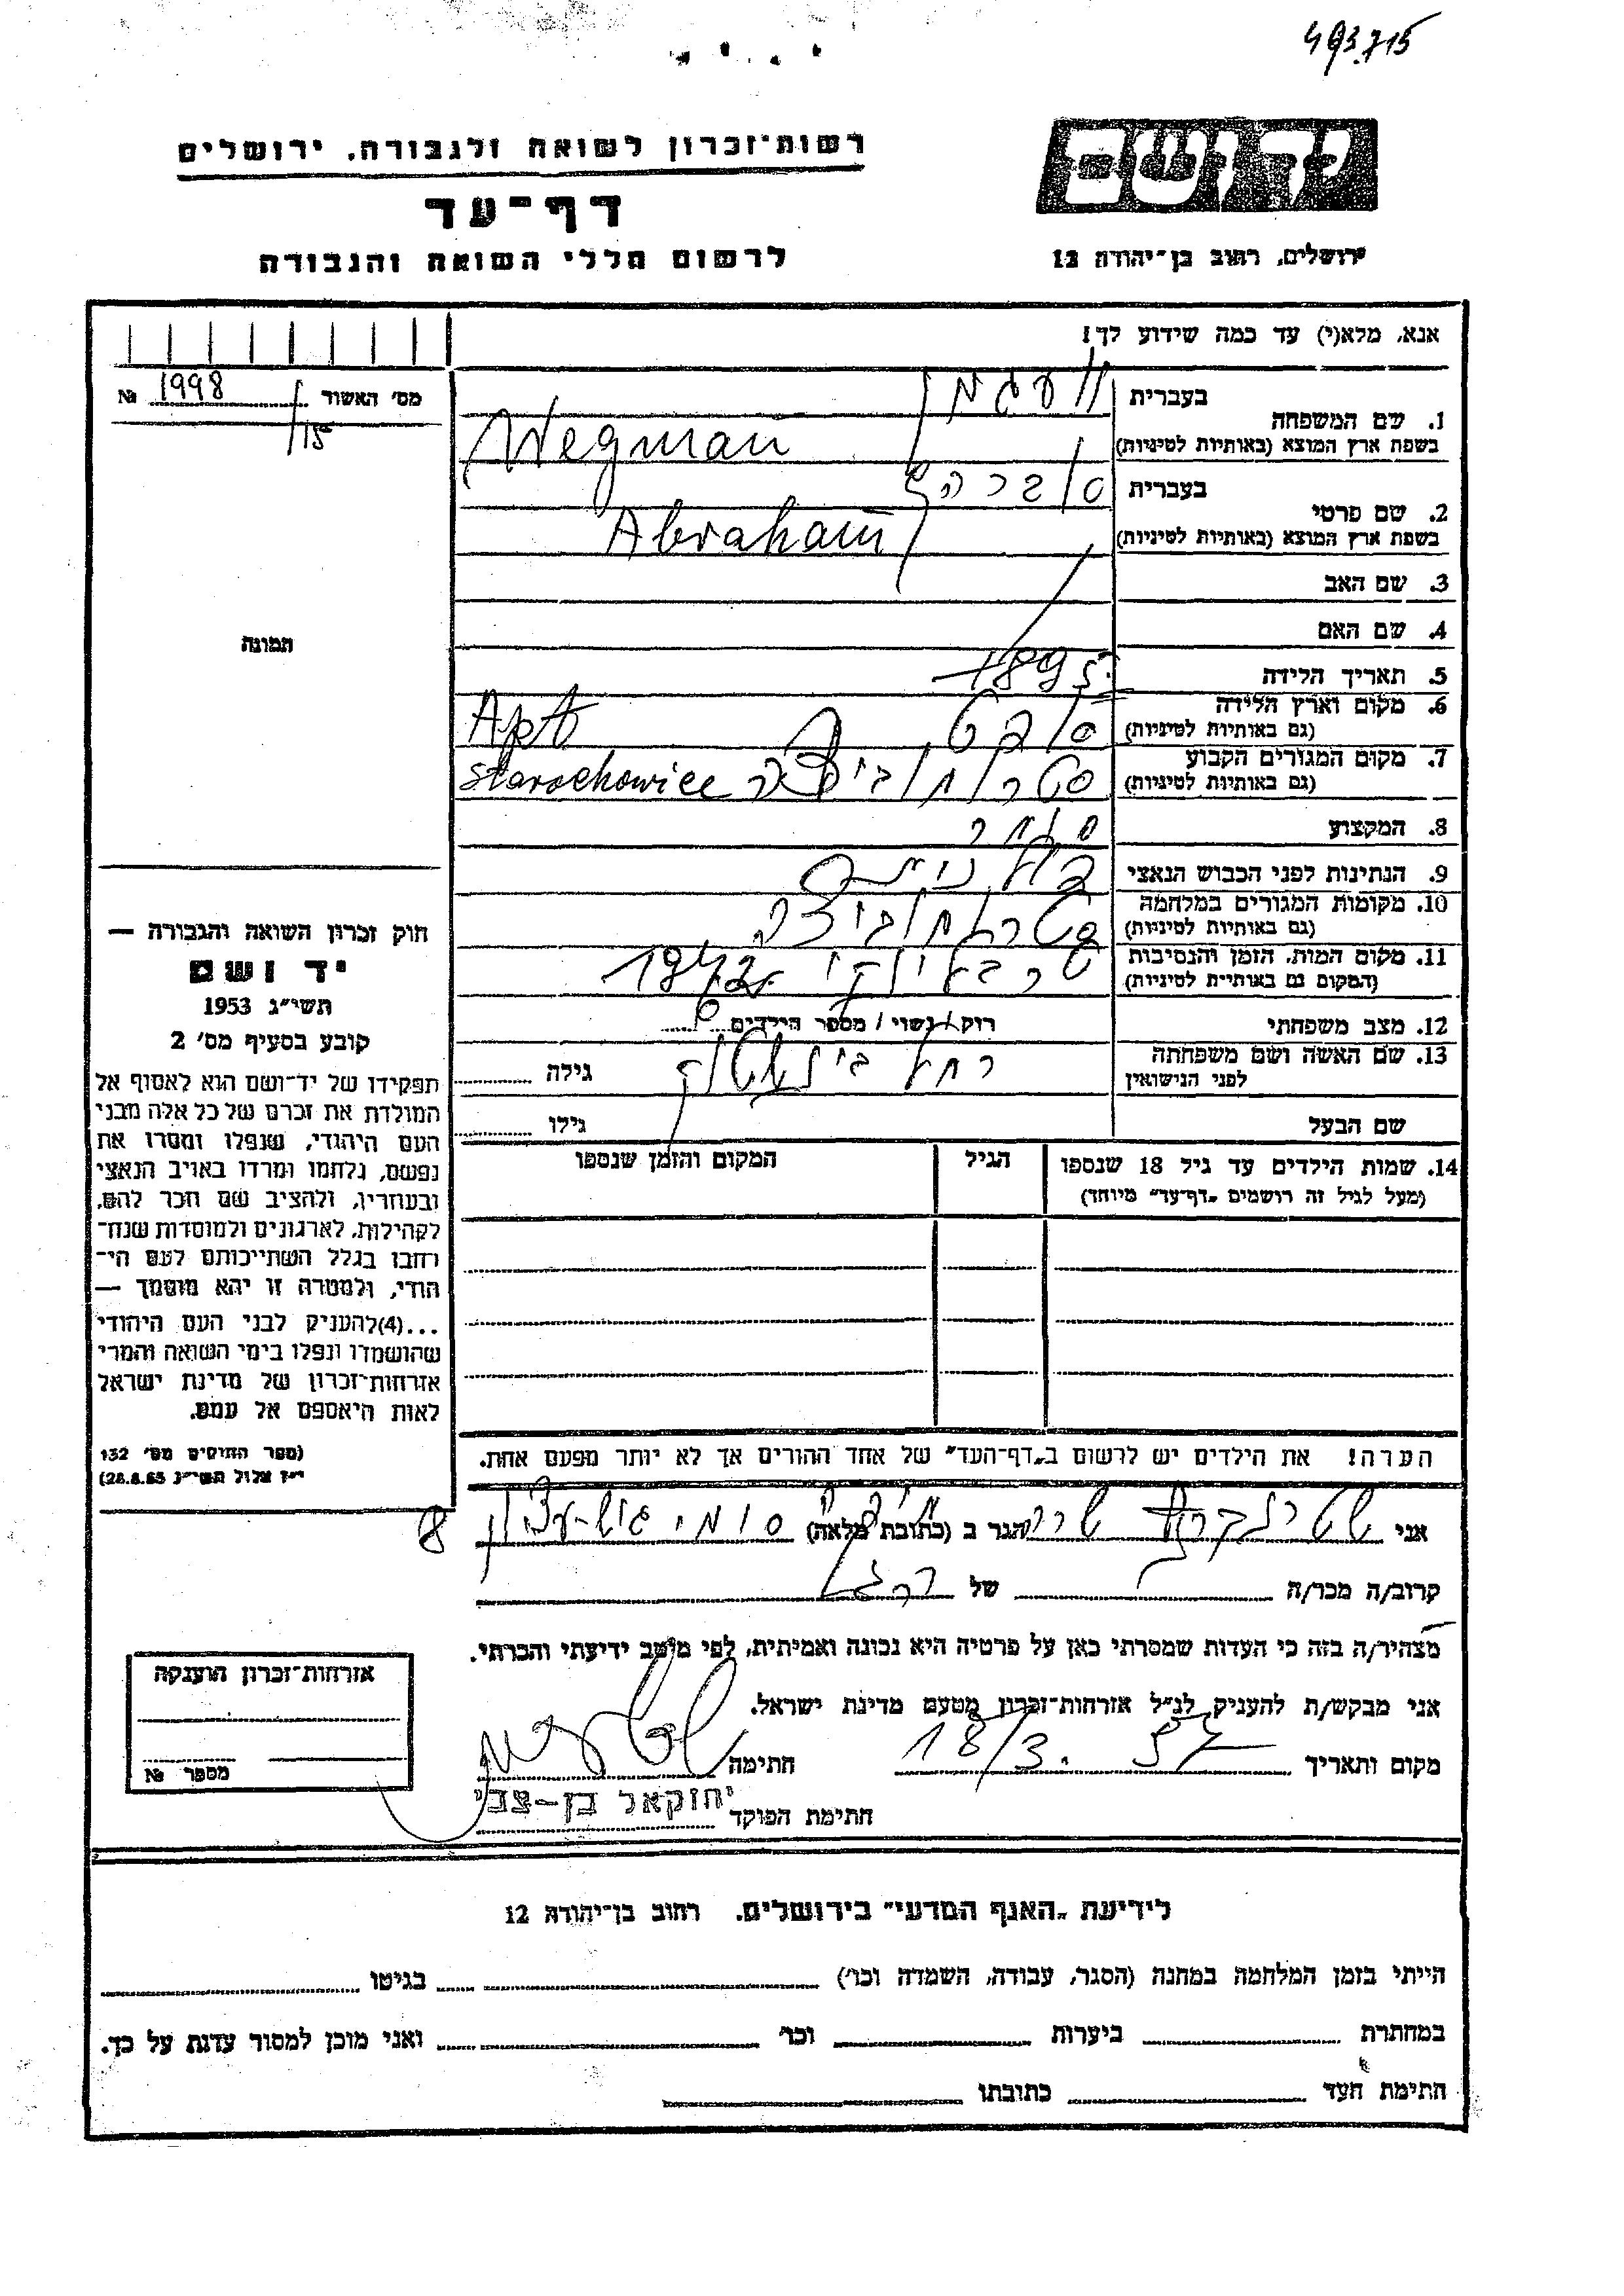 493715
רשות-זכרון לשואה ולגבורה, ירושלים
דף-עד
לרשום חללי השואה והגבורה
יד ושם
ירושלים, רחוב בן-יהודה 12
אנא, מלא(י) עד כמה שידוע לך!
מס' האשור 1998 №
/15
תמונה
1. שם המשפחה
בעברית וועגמן
בשפת ארץ המוצא (באותיות לטיניות) Wegman
2. שם פרטי
בעברית אברהם
בשפת ארץ המוצא (באותיות לטיניות) Abraham
3. שם האב
4. שם האם
5. תאריך הלידה 1895
6. מקום וארץ הלידה
(גם באותיות לטיניות) אפט Apt
7. מקום המגורים הקבוע
(גם באותיות לטיניות) Starochowice
8. המקצוע סוחר
9. הנתינות לפני הכבוש הנאצי פולנית
10. מקומות המגורים במלחמה
(גם באותיות לטיניות)
11. מקום המות, הזמן והנסיבות
(המקום גם באותיות לטיניות) טרבלינקי 1942
12. מצב משפחתי רוק/נשוי/מספר הילדים
13. שם האשה ושם משפחתה
לפני הנישואין רחל גילה
שם הבעל גילו
14. שמות הילדים עד גיל 18 שנספו הגיל המקום והזמן שנספו
(מעל לגיל זה רושמים "דף-עד" מיוחד)
הערה! את הילדים יש לרשום ב"דף-העד" של אחד ההורים אך לא יותר מפעם אחת.
חוק זכרון השואה והגבורה —
יד ושם
תשי"ג 1953
קובע בסעיף מס' 2
תפקידו של יד-ושם הוא לאסוף אל
המולדת את זכרם של כל אלה מבני
העם היהודי, שנפלו ומסרו את
נפשם, נלחמו ומרדו באויב הנאצי
ובעוזריו, ולהציב שם וזכר להם,
לקהילות, לארגונים ולמוסדות שנח-
רבו בגלל השתייכותם לעם הי-
הודי, ולמטרה זו יהא מוסמך —
...(4)להעניק לבני העם היהודי
שהושמדו ונפלו בימי השואה והמרי
אזרחות-זכרון של מדינת ישראל
לאות היאספם אל עמם.
(ספר החוקים מס' 132
י"ז אלול תשי"ג 28.8.53)
אני הגר ב (כתובת מלאה) 8
קרוב/ה מכר/ה של
מצהיר/ה בזה כי העדות שמסרתי כאן על פרטיה היא נכונה ואמיתית, לפי מיטב ידיעתי והכרתי.
אני מבקש/ת להעניק לנ"ל אזרחות-זכרון מטעם מדינת ישראל.
מקום ותאריך 18/3. 57 חתימה
חתימת הפוקד יחזקאל בן-צבי
אזרחות-זכרון הוענקה
מספר №
לידיעת "האגף המדעי" בירושלים, רחוב בן-יהודה 12
הייתי בזמן המלחמה במחנה (הסגר, עבודה, השמדה וכו') בגיטו
במחתרת ביערות וכו' ואני מוכן למסור עדות על כך.
חתימת העד כתובתו